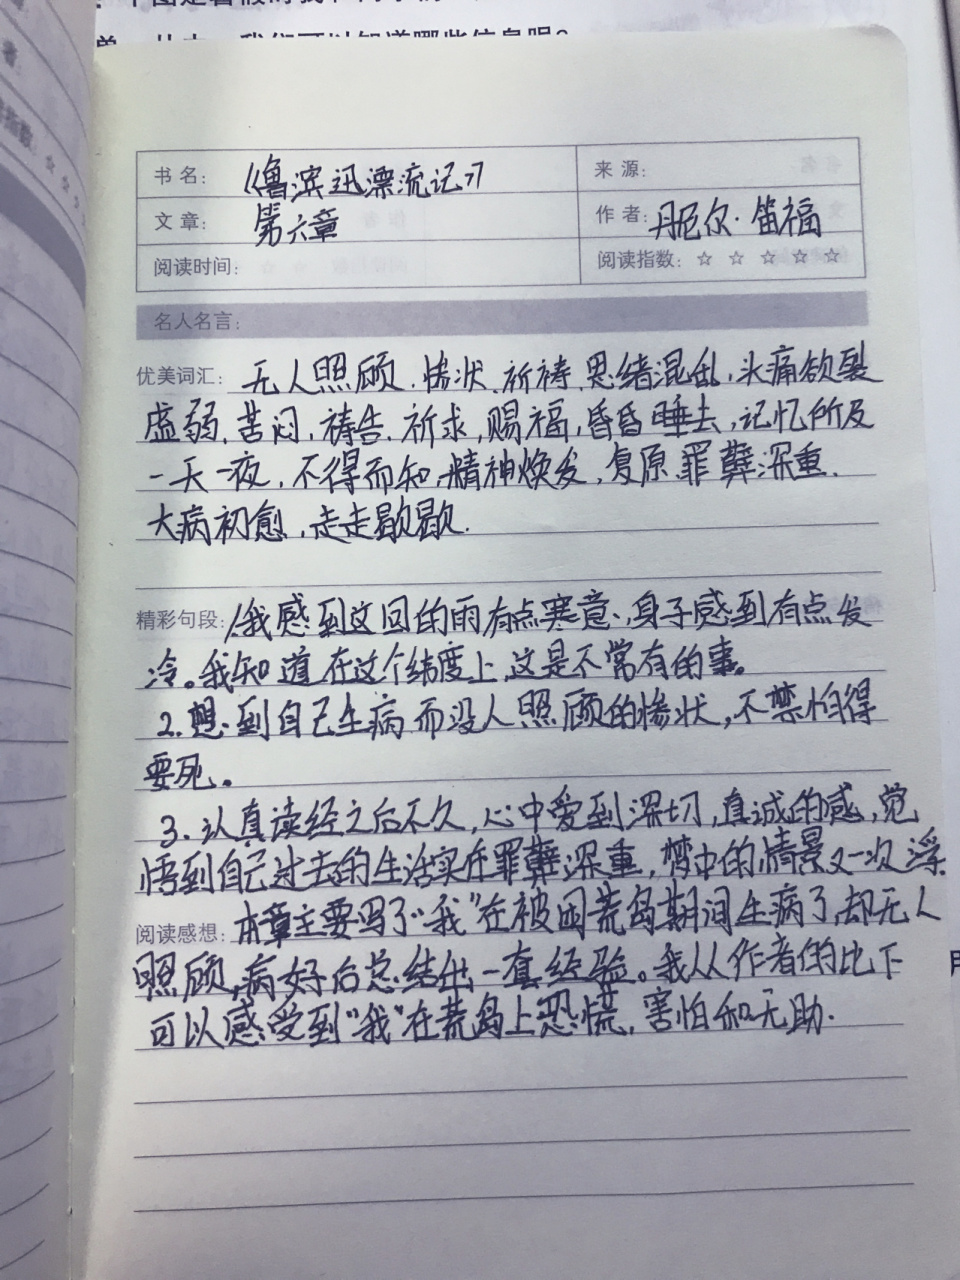 书名：《鲁滨迅漂流记》 来源：
文章：第六章 作者：丹尼尔·笛福
阅读时间： 阅读指数：☆ ☆ ☆ ☆ ☆
名人名言：
优美词汇：无人照顾、惨状、祈祷、思绪混乱、头痛欲裂
虚弱、苦闷、祷告、祈求、赐福、昏昏睡去、记忆所及
一天一夜、不得而知、精神焕发、复原、罪孽深重、
大病初愈、走走歇歇.
精彩句段：1.我感到这回的雨有点寒意、身子感到有点发
冷。我知道在这个纬度上,这是不常有的事。
2.想到自己生病而没人照顾的惨状,不禁怕得
要死。
3.认真读经之后不久,心中爱到深切,真诚的感,觉
悟到自己过去的生活实在罪孽深重,梦中的情景又一次浮.
阅读感想：本章主要写了“我”在被困荒岛期间生病了,却无人
照顾,病好后总结出一套经验。我从作者的比下
可以感受到“我”在荒岛上恐慌,害怕和无助.